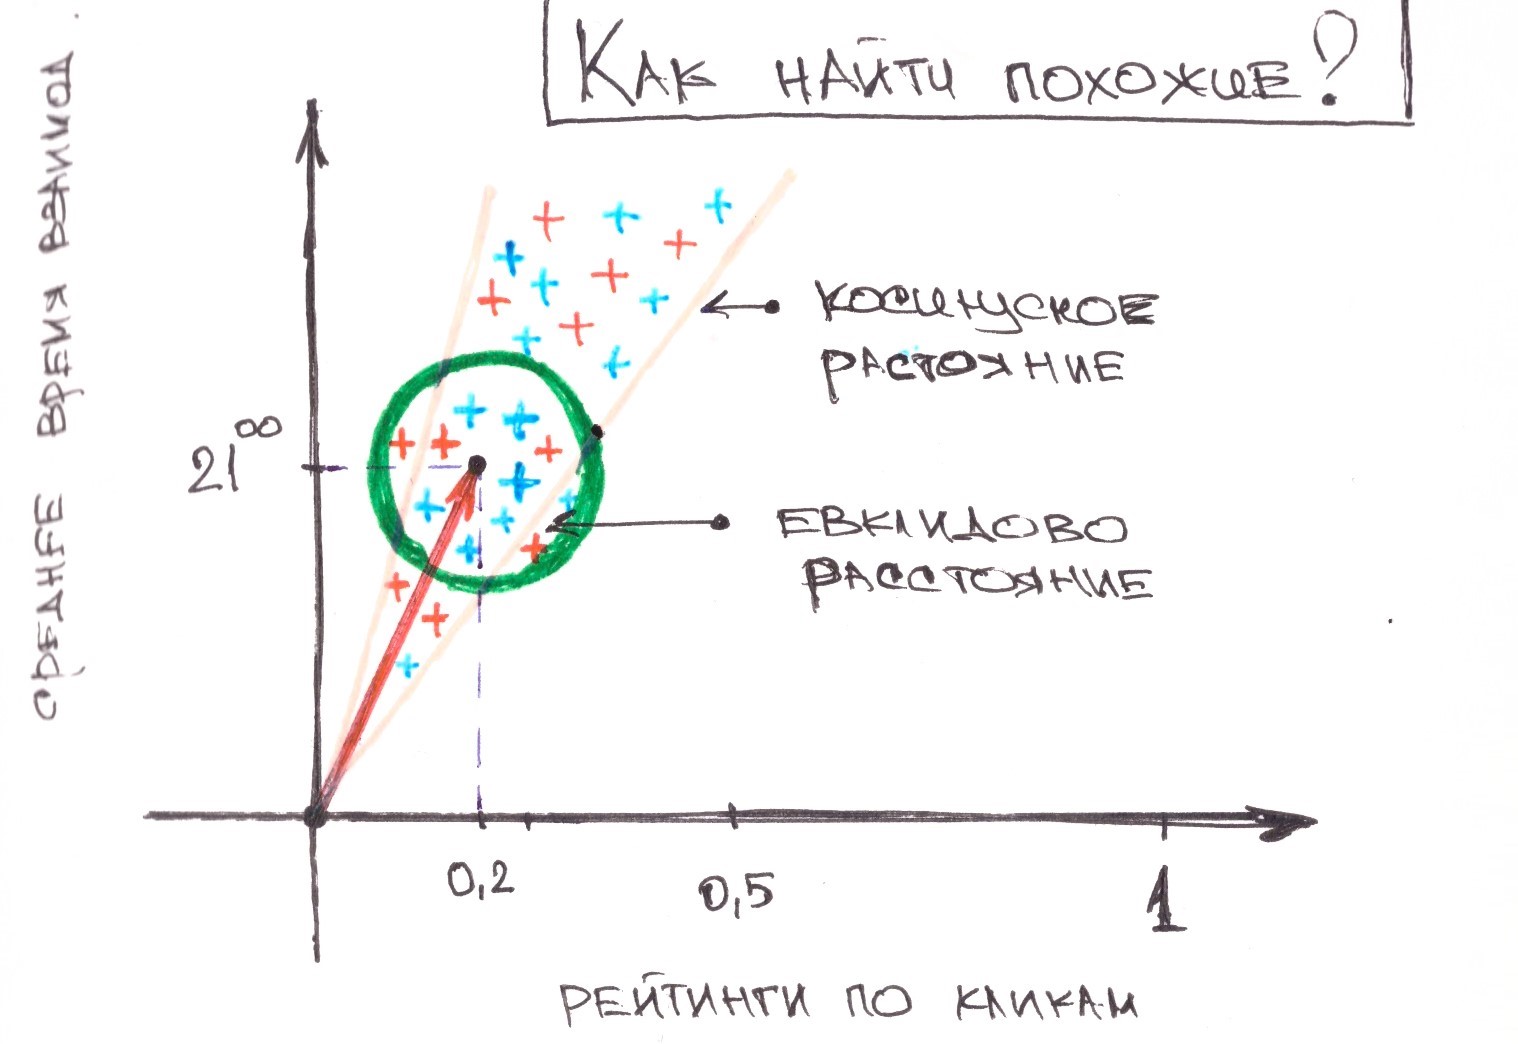 КАК НАЙТИ ПОХОЖИЕ?
СРЕДНЕЕ ВРЕМЯ ВЗАИМОД.
КОСИНУСКОЕ
РАСТОЯНИЕ
21⁰⁰
ЕВКЛИДОВО
РАССТОЯНИЕ
0,2
0,5
1
РЕЙТИНГИ ПО КЛИКАМ